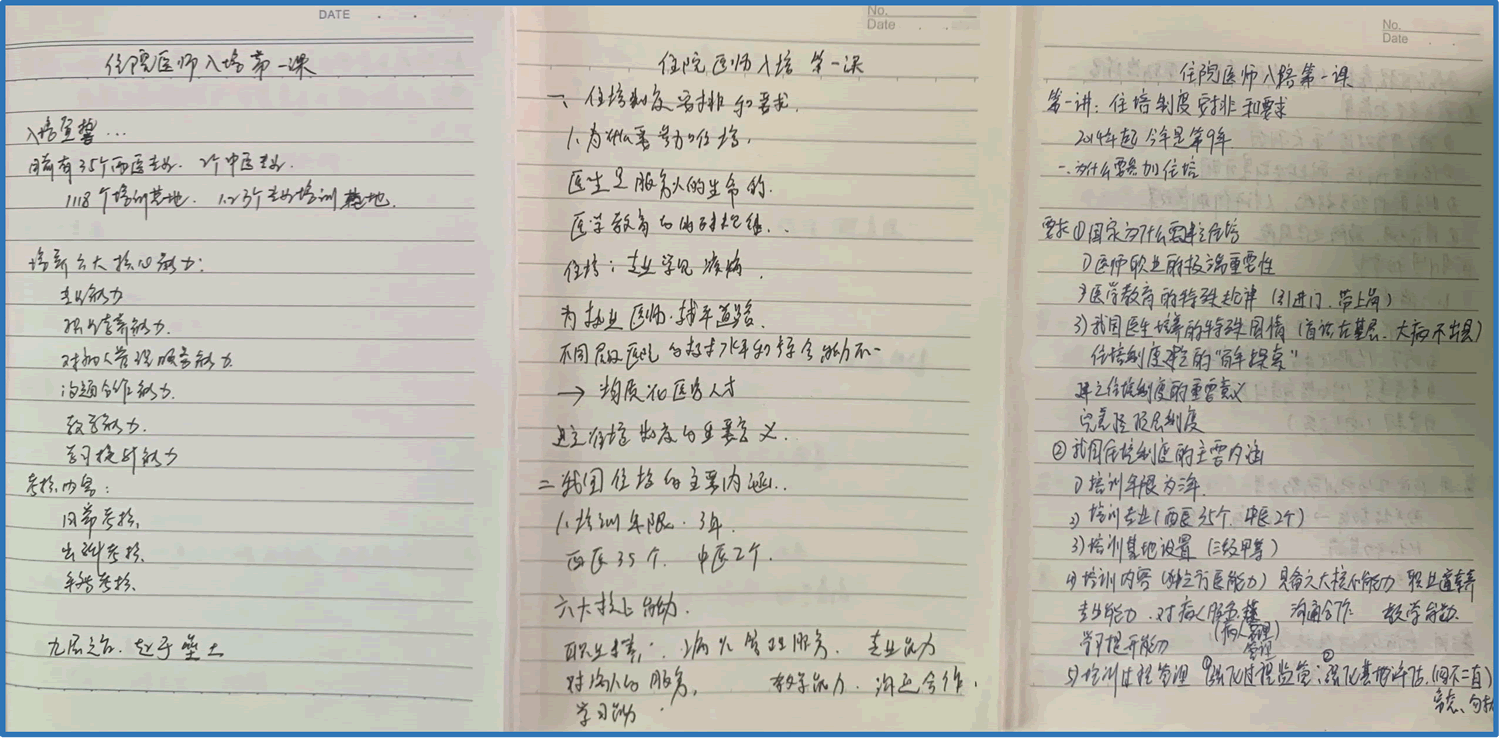 DATE
住院医师入培第一课
入培宣誓...
目前有35个西医专业. 2个中医专业.
1118个培训基地. 1.2万个专业培训基地.
培养六大核心能力:
专业能力
职业素养能力.
对病人管理服务能力.
沟通合作能力.
教学能力.
学习提升能力
考核内容:
日常考核.
出科考核.
年终考核.
九层之台. 起于垒土
No.
Date
住院医师入培 第一课
一、住培制度安排和要求.
1. 为什么要参加住培,
医生是服务人的生命的.
医学教育的特殊规律...
住培: 专业 常见疾病.
为执业医师. 铺平道路.
不同层级医院的技术水平和综合能力不一
→ 均质化医务人才
建立住培制度的重要意义...
二 我国住培的主要内涵..
1. 培训年限. 3年.
西医35个. 中医2个.
六大核心能力.
职业精 病人管理服务. 专业能力
对病人的服务, 教学能力. 沟通合作.
学习能力.
No.
Date
住院医师入培第一课
第一讲: 住培制度安排和要求
2014年起 今年是第9年
一. 为什么要参加住培
要求①国家为什么要建立住培
1) 医师职业的极端重要性
2) 医学教育的特殊规律 (引进门. 带上岗)
3) 我国医生培养的特殊国情 (首诊在基层. 大病不出县)
住培制度建立的"百年探索"
建立住培制度的重要意义
完善 顶层制度
② 我国住培制度的主要内涵
1) 培训年限为三年.
2) 培训专业 (西医35个. 中医2个)
3) 培训基地设置 (三级甲等)
4) 培训内容 (独立行医能力) 具备六大核心能力 职业道素养
专业能力. 对病人服务 沟通合作 教学能力.
学习提升能力 (病人管理)
5) 培训过程管理 ①强化过程监管; ②强化基地评估. (四不二直)